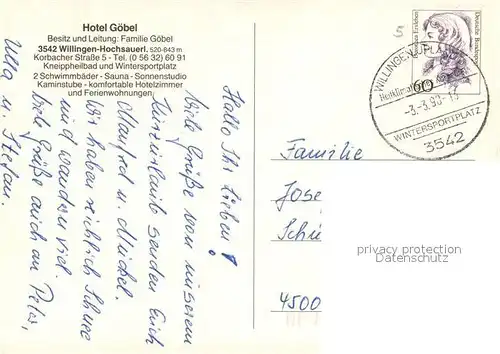 Hotel Göbel
Besitz und Leitung: Familie Göbel
3542 Willingen-Hochsauerl. 520-843 m
Korbacher Straße 5 - Tel. (0 56 32) 60 91
Kneippheilbad und Wintersportplatz
2 Schwimmbäder - Sauna - Sonnenstudio
Kaminstube - komfortable Hotelzimmer
und Ferienwohnungen
Hallo Ihr Lieben!
Viele Grüße von unserem
Kurzurlaub senden Euch
Manfred u. Michel.
Wir haben reichlich Schnee
und wandern viel.
Viele Grüße auch an Peter,
Ulla u. Stefan.
5
Deutsche Bundespost
60
WILLINGEN, UPLAND
-3.-3.90-13
WINTERSPORTPLATZ
3542
Familie
Jose
Schü
4500
privacy protection
AnsichtskartenHandel.de